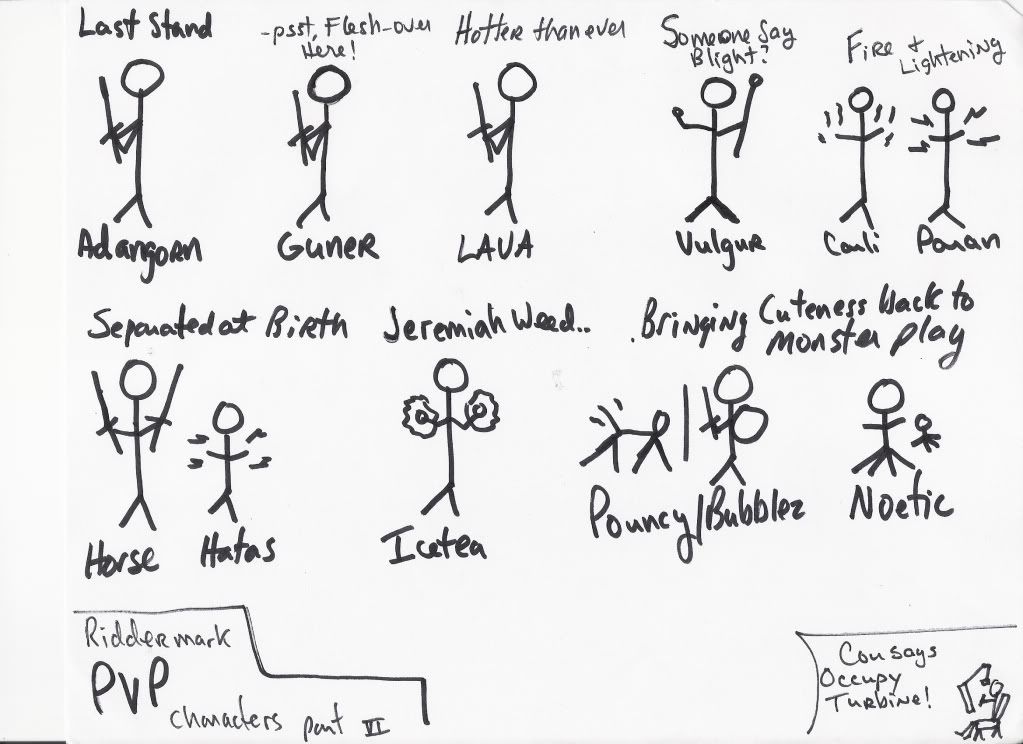 Last Stand
-psst, Flesh-over
Here!
Hotter than ever
Someone Say
Blight?
Fire +
Lightening
Adangorn
Guner
LAVA
Vulgur
Canli
Panan
Separated at Birth
Jeremiah Weed..
Bringing Cuteness back to
monster play
Horse
Hatas
Icetea
Pouncy/Bubblez
Noetic
Riddermark
PVP
characters part VI
Cou says
Occupy
Turbine!